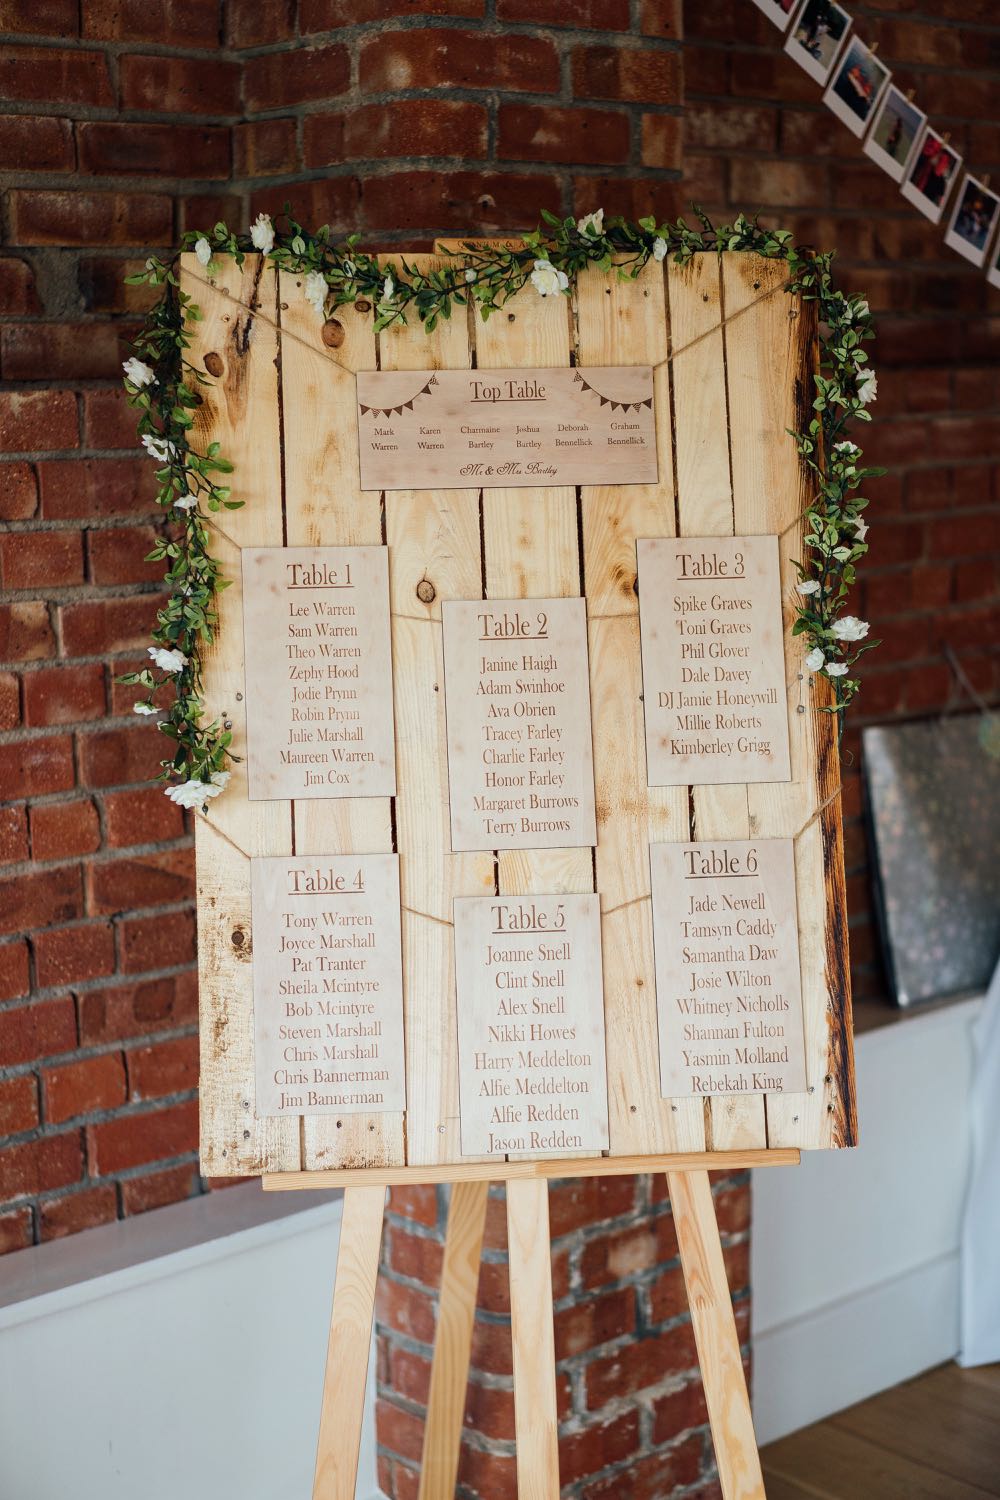 Top Table
Mark Karen Charmaine Joshua Deborah Graham
Warren Warren Bartley Bartley Bennellick Bennellick
Mr & Mrs Bartley
Table 1
Lee Warren
Sam Warren
Theo Warren
Zephy Hood
Jodie Prynn
Robin Prynn
Julie Marshall
Maureen Warren
Jim Cox
Table 2
Janine Haigh
Adam Swinhoe
Ava Obrien
Tracey Farley
Charlie Farley
Honor Farley
Margaret Burrows
Terry Burrows
Table 3
Spike Graves
Toni Graves
Phil Glover
Dale Davey
DJ Jamie Honeywill
Millie Roberts
Kimberley Grigg
Table 4
Tony Warren
Joyce Marshall
Pat Tranter
Sheila Mcintyre
Bob Mcintyre
Steven Marshall
Chris Marshall
Chris Bannerman
Jim Bannerman
Table 5
Joanne Snell
Clint Snell
Alex Snell
Nikki Howes
Harry Meddelton
Alfie Meddelton
Alfie Redden
Jason Redden
Table 6
Jade Newell
Tamsyn Caddy
Samantha Daw
Josie Wilton
Whitney Nicholls
Shannan Fulton
Yasmin Molland
Rebekah King